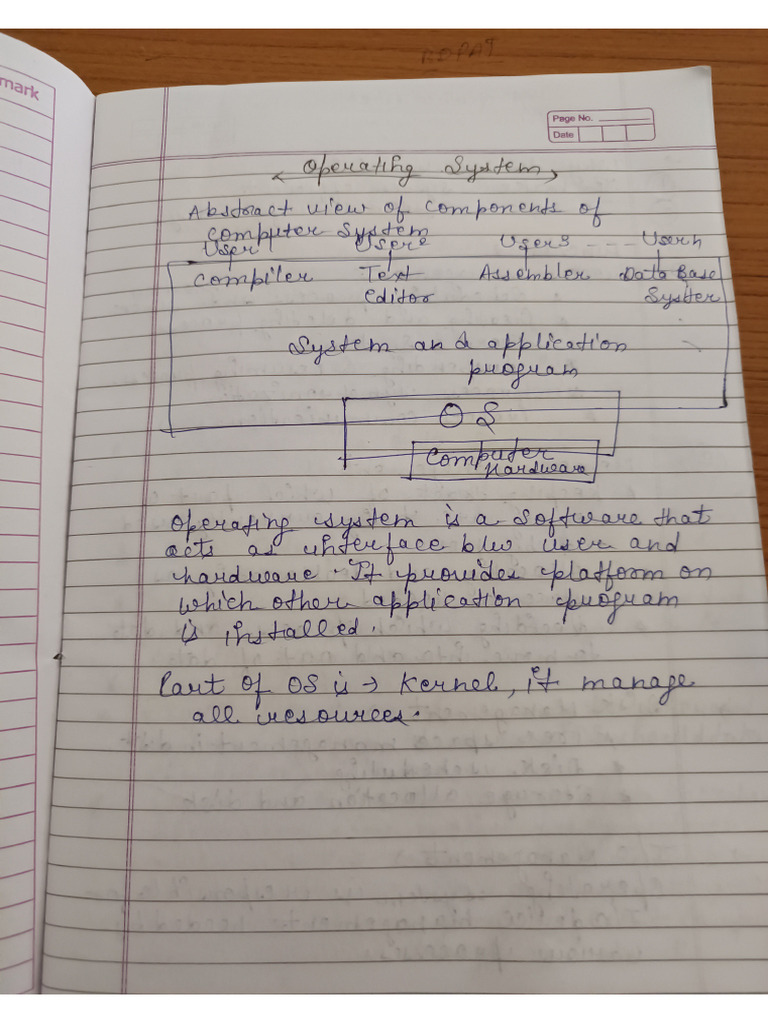 mark
Page No.
Date
Operating System
Abstract view of components of
computer System
User User2 User3 --- Usern
Compiler Text Assembler Data Base
Editor System
System and application
program
OS
Computer
Hardware
Operating system is a software that
acts as interface b/w user and
hardware. It provides platform on
which other application program
is installed.
Part of OS is → Kernel, it manage
all resources.